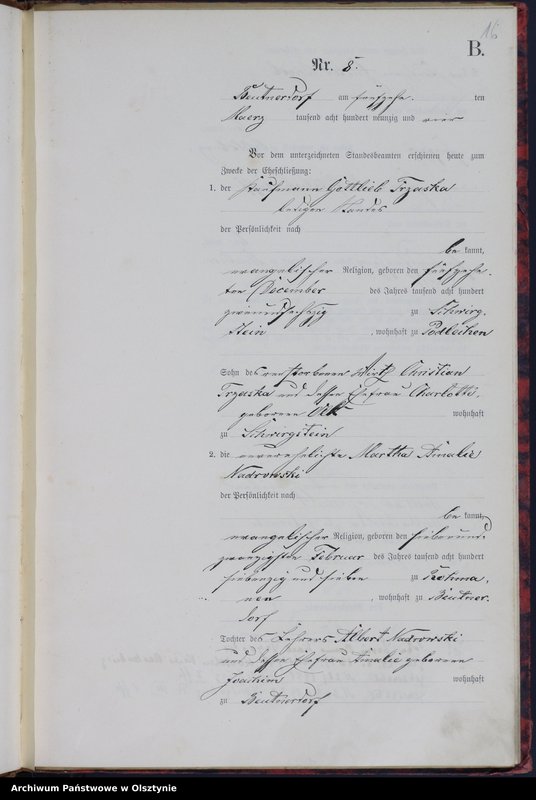 16
B.
Nr. 8.
Beutnerdorf am fünfzehn ten
Maerz tausend acht hundert neunzig und vier
Vor dem unterzeichneten Standesbeamten erschienen heute zum
Zwecke der Eheschließung:
1. der Kaufmann Gottlieb Trzaska
ledigen Standes
der Persönlichkeit nach
be kannt,
evangelischer Religion, geboren den fünfzehn-
ten December des Jahres tausend acht hundert
zweiundsechszig zu
stein, wohnhaft zu Podleiken
Sohn des verstorbenen Wirth Christian
Trzaska und dessen Ehefrau Charlotte,
geborene wohnhaft
zu
2. die unverehelichte Martha Amalie
Nadrowski
der Persönlichkeit nach
be kannt,
evangelischer Religion, geboren den siebenund-
zwanzigsten Februar des Jahres tausend acht hundert
siebenzig und sieben zu
nen, wohnhaft zu Beutner-
dorf
Tochter des Lehrers Albert Nadrowski
und dessen Ehefrau Amalie geborene
Joachim wohnhaft
zu Beutnerdorf
Archiwum Państwowe w Olsztynie